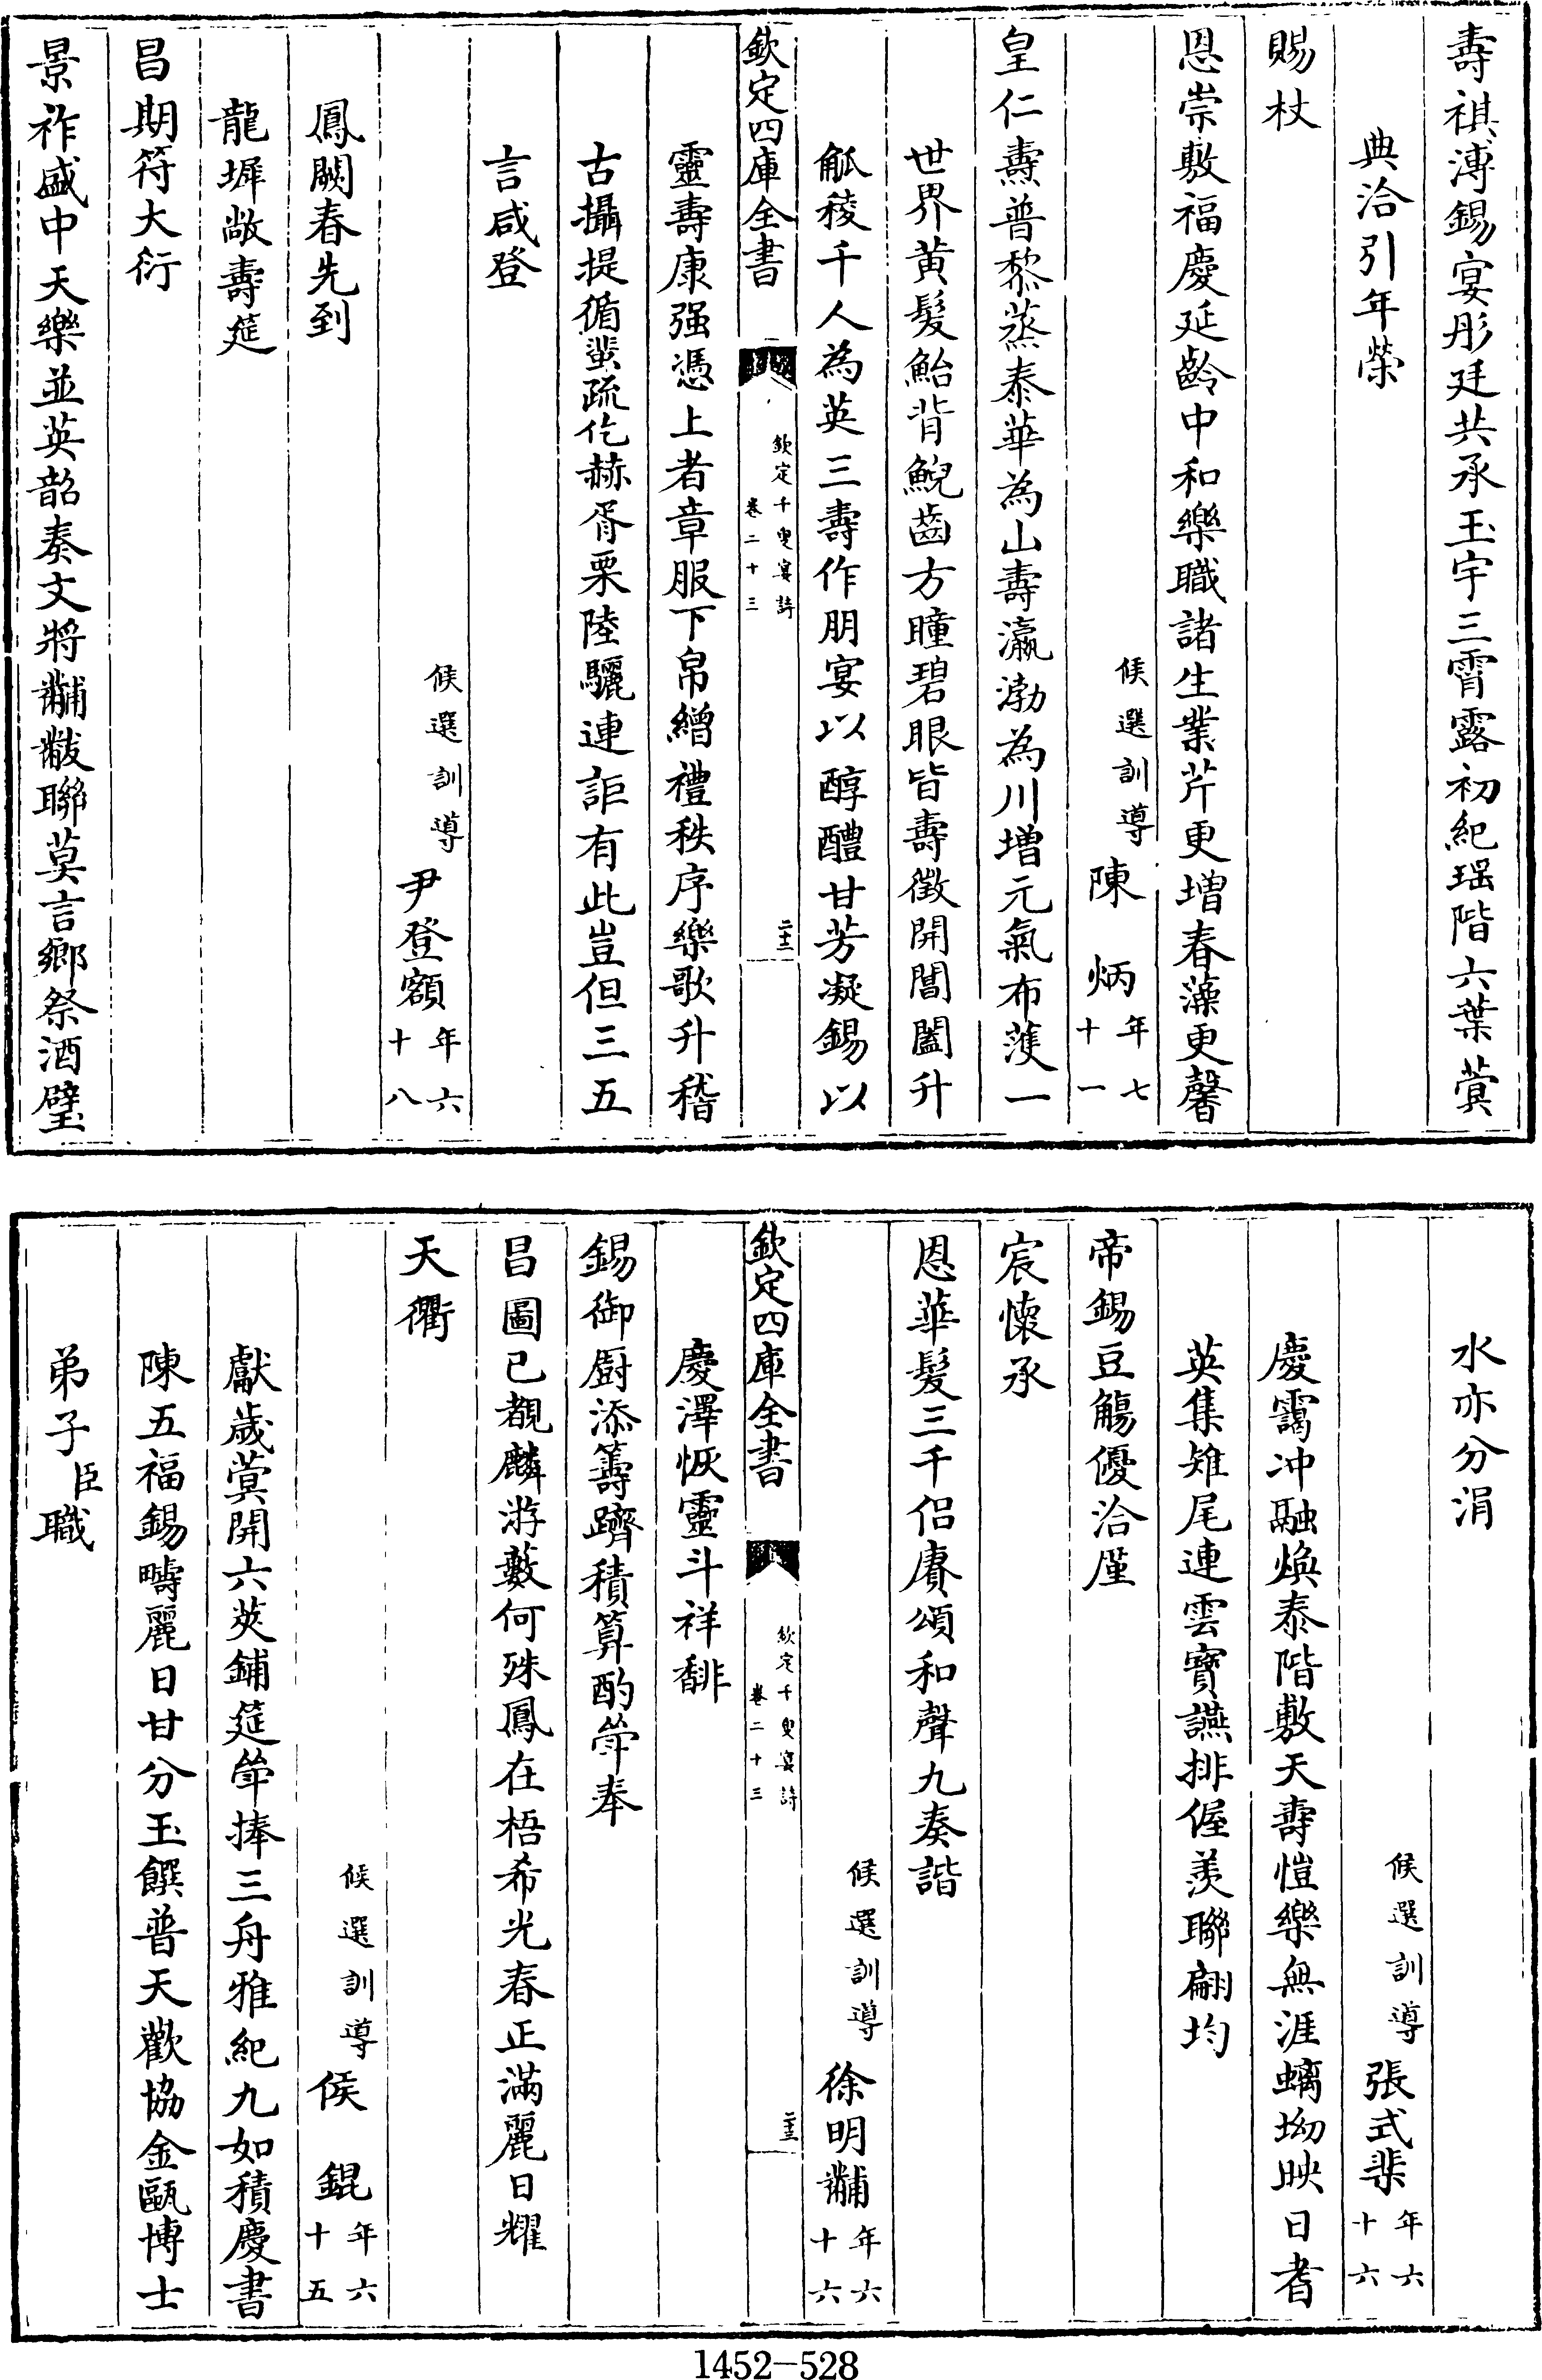 壽祺溥錫宴彤廷共承玉宇三霄露初紀瑶階六葉蓂
典洽引年榮
賜杖
恩崇敷福慶延齡中和樂職諸生業芹更增春藻更馨
候選訓導陳 炳年七十一
皇仁燾普黎蒸泰華為山壽瀛渤為川增元氣布濩一
世界黄髮鮐背鯢齒方瞳碧眼皆壽徵開閶闔升
觚稜千人為英三壽作朋宴以醇醴甘芳凝錫以
欽定四庫全書 欽定千叟宴詩 卷二十三 二十二
靈壽康强憑上者章服下帛繒禮秩序樂歌升稽
古攝提循蜚疏仡赫胥栗陸驪連詎有此豈但三五
言咸登
候選訓導尹登額年六十八
鳳闕春先到
龍墀敞壽筵
昌期符大衍
景祚盛中天樂並英韶奏文將黼黻聯莫言鄉祭酒璧
水亦分涓
候選訓導張式棐年六十六
慶靄冲融煥泰階敷天壽愷樂無涯螭坳映日耆
英集雉尾連雲寶讌排偓羨聯翩均
帝錫豆觴優洽厪
宸懷承
恩華髮三千侣賡頌和聲九奏諧
候選訓導徐明黼年六十六
欽定四庫全書 欽定千叟宴詩 卷二十三 二十三
慶澤恢靈斗祥馡
錫御厨添籌躋積算酌斝奉
昌圖已覩麟游藪何殊鳳在梧希光春正滿麗日耀
天衢
候選訓導侯 錕年六十五
獻歲蓂開六莢鋪筵斝捧三舟雅紀九如積慶書
陳五福錫疇麗日甘分玉饌普天歡協金甌博士
弟子臣職
1452-528